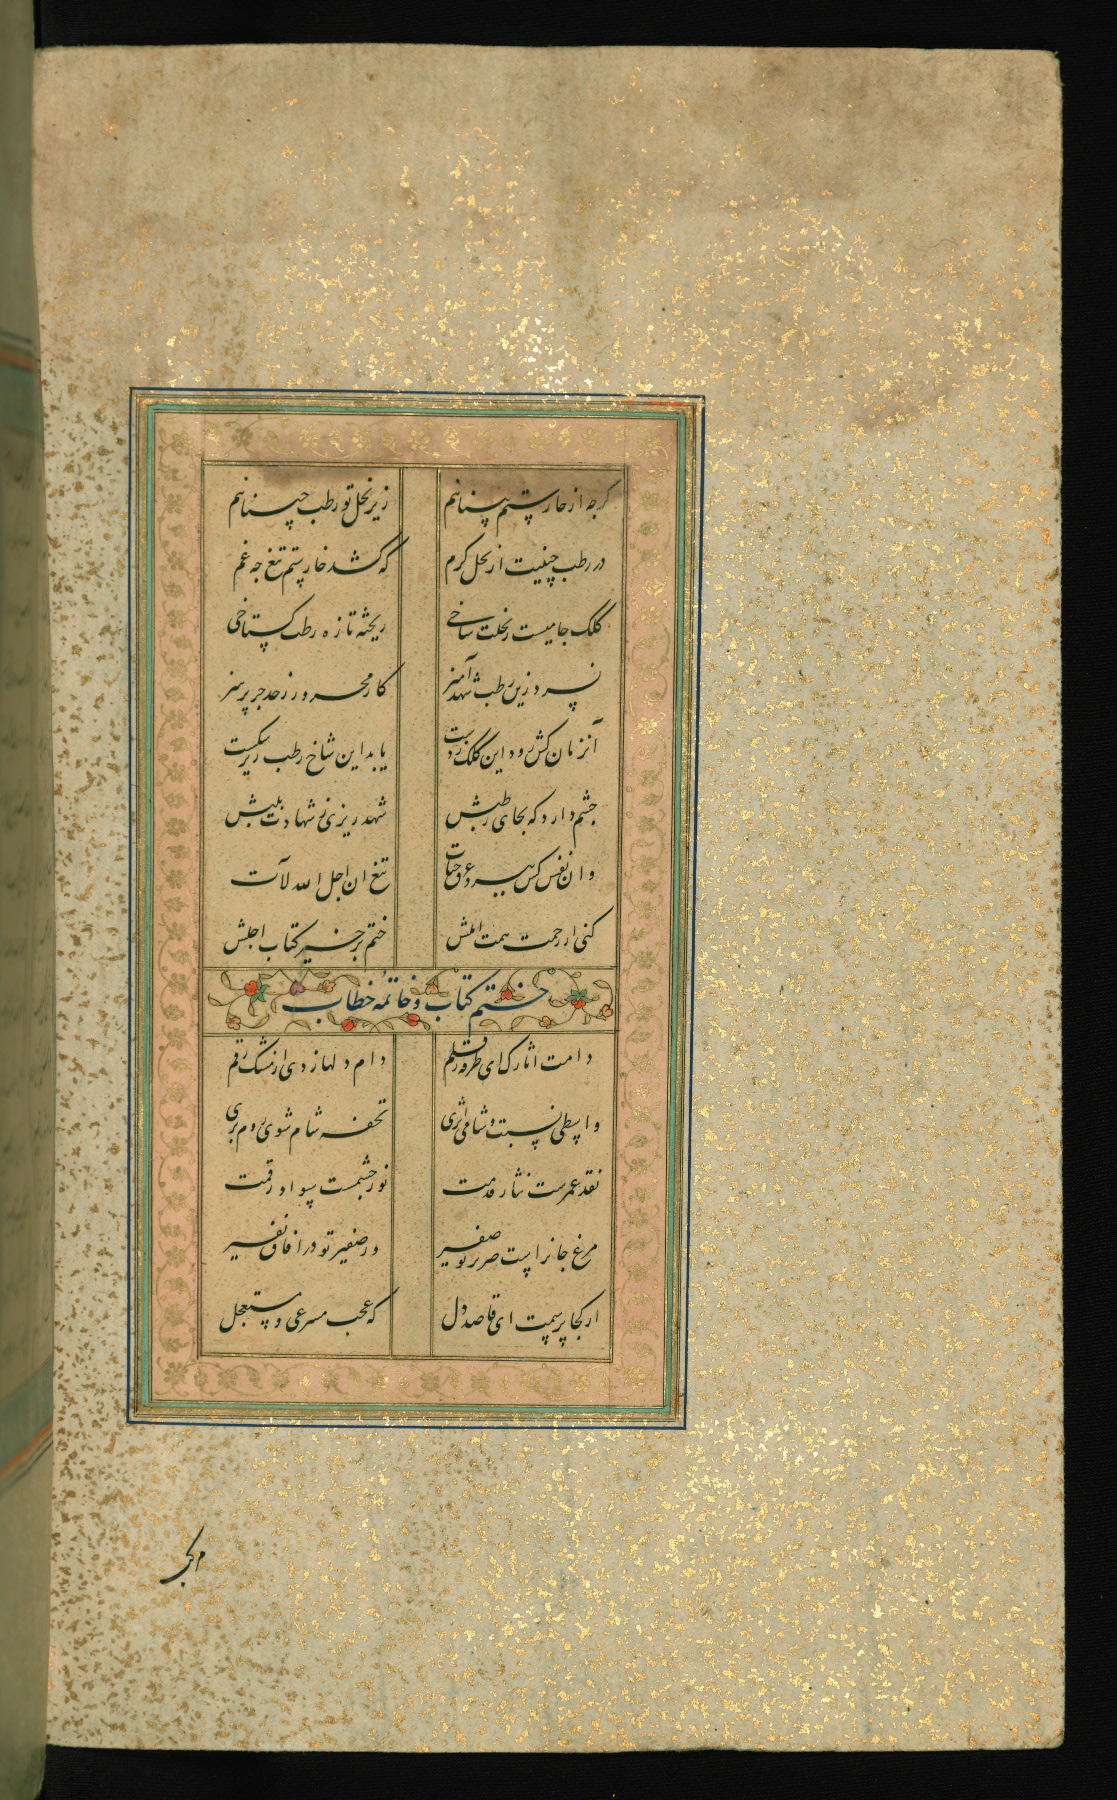 کرچه از خار ستم پستانیم زیر نخل تو رطب چینانیم
در رطب چینیت از نخل کرم که کشد خار ستم تیغ چه غم
کلک جامیست ز نخلت شاخی ریخته تازه رطب کستاخی
نسزد زین رطب شهدآمیز کار محرور ز حد جز پرهیز
آنزمان کش رود این کلک ز دست یابد این شاخ رطب ریز شکست
چشم دارد که بجای رطبش شهد ریزی ز شهادت بلبش
وان نفس کش ببرد عرق حیات تیغ ان اجل الله لآت
کنی از رحمت بی‌مهلش ختم بر خیر کتاب اجلش
ختم کتاب و خاتمه خطاب
دامت آثارک ای طرفه قلم دام دلها زدی از مشک رقم
واسطی نسبت و شامی اثری تحفه شام سوی روم بری
نقد عمرست نثار قدمت نور چشمست سواد رقمت
مرغ جانراست صریر تو صفیر وز صفیر تو در آفاق نفیر
از کجا پرسمت ای قاصد دل که عجب مسرعی و مستعجل